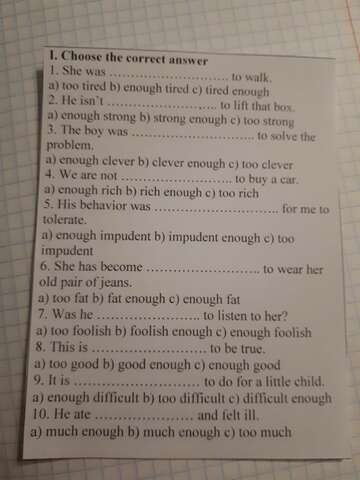 I. Choose the correct answer
1. She was ............................ to walk.
a) too tired b) enough tired c) tired enough
2. He isn't .....................,.... to lift that box.
a) enough strong b) strong enough c) too strong
3. The boy was ............................ to solve the
problem.
a) enough clever b) clever enough c) too clever
4. We are not .......................... to buy a car.
a) enough rich b) rich enough c) too rich
5. His behavior was ............................. for me to
tolerate.
a) enough impudent b) impudent enough c) too
impudent
6. She has become .......................... to wear her
old pair of jeans.
a) too fat b) fat enough c) enough fat
7. Was he ........................ to listen to her?
a) too foolish b) foolish enough c) enough foolish
8. This is .......................... to be true.
a) too good b) good enough c) enough good
9. It is ............................. to do for a little child.
a) enough difficult b) too difficult c) difficult enough
10. He ate ....................... and felt ill.
a) much enough b) much enough c) too much